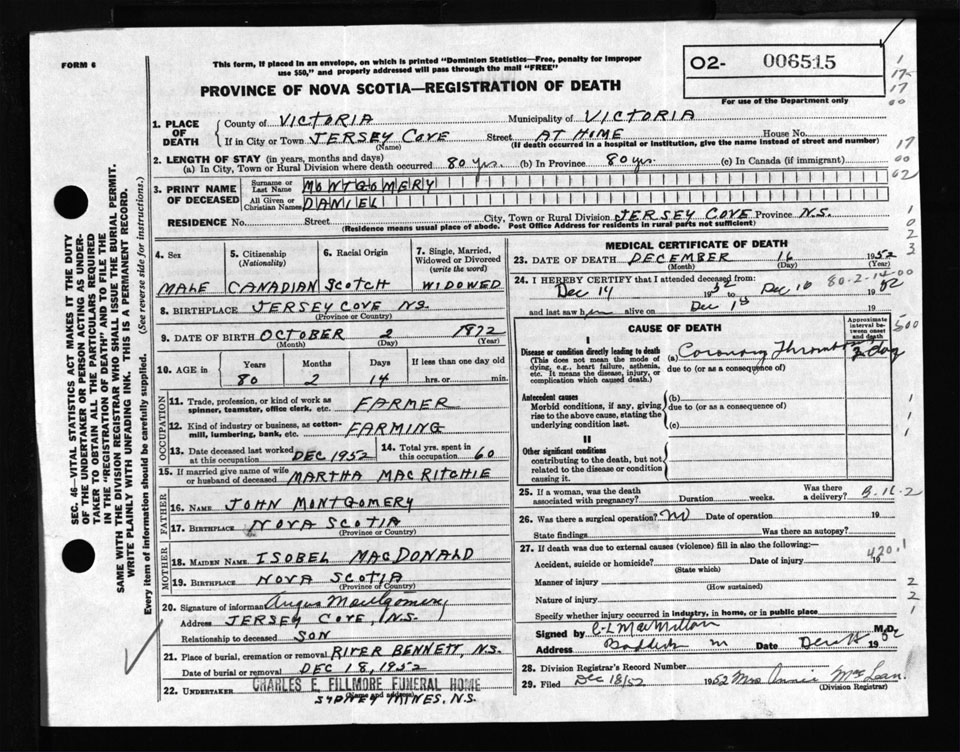 FORM 6
This form, if placed in an envelope, on which is printed "Dominion Statistics—Free, penalty for improper
use $50," and properly addressed will pass through the mail "FREE"
O2- 006515
For use of the Department only
PROVINCE OF NOVA SCOTIA—REGISTRATION OF DEATH
1. PLACE OF DEATH
County of VICTORIA Municipality of VICTORIA
If in City or Town JERSEY COVE Street AT HOME House No.
(Name) (If death occurred in a hospital or institution, give the name instead of street and number)
2. LENGTH OF STAY (in years, months and days)
(a) In City, Town or Rural Division where death occurred 80 yrs. (b) In Province 80 yrs. (c) In Canada (if immigrant)
3. PRINT NAME OF DECEASED
Surname or Last Name MONTGOMERY
All Given or Christian Names DANIEL
RESIDENCE No. Street City, Town or Rural Division JERSEY COVE Province N.S.
(Residence means usual place of abode. Post Office Address for residents in rural parts not sufficient)
4. Sex
MALE
5. Citizenship (Nationality)
CANADIAN
6. Racial Origin
SCOTCH
7. Single, Married, Widowed or Divorced (write the word)
WIDOWED
8. BIRTHPLACE JERSEY COVE N.S.
(Province or Country)
9. DATE OF BIRTH OCTOBER 2 1872
(Month) (Day)
10. AGE in
Years Months Days If less than one day old
80 2 14 hrs. or min.
OCCUPATION
11. Trade, profession, or kind of work as
spinner, teamster, office clerk, etc. FARMER
12. Kind of industry or business, as cotton-
mill, lumbering, bank, etc. FARMING
13. Date deceased last worked at this occupation DEC 1952
14. Total yrs. spent in this occupation 60
15. If married give name of wife or husband of deceased MARTHA MACRITCHIE
FATHER
16. Name JOHN MONTGOMERY
17. Birthplace NOVA SCOTIA
(Province or Country)
MOTHER
18. MAIDEN NAME ISOBEL MACDONALD
19. BIRTHPLACE NOVA SCOTIA
(Province or Country)
20. Signature of informant Angus Montgomery
Address JERSEY COVE, N.S.
Relationship to deceased SON
21. Place of burial, cremation or removal RIVER BENNETT, N.S.
Date of burial or removal DEC 18, 1952
22. UNDERTAKER CHARLES E. FILLMORE FUNERAL HOME
(Name and address)
SYDNEY MINES, N.S.
MEDICAL CERTIFICATE OF DEATH
23. DATE OF DEATH DECEMBER 16 1952
(Month) (Day)
24. I HEREBY CERTIFY that I attended deceased from: 80-2-14-00
Dec 14 1952 to Dec 16 1952
and last saw him alive on Dec 19
CAUSE OF DEATH
Approximate interval between onset and death
I
Disease or condition directly leading to death
(This does not mean the mode of dying, e.g., heart failure, asthenia, etc. It means the disease, injury, or complication which caused death.)
(a) Coronary Thrombosis 2 day
due to (or as a consequence of)
Antecedent causes
Morbid conditions, if any, giving rise to the above cause, stating the underlying condition last.
(b)
due to (or as a consequence of)
(c)
II
Other significant conditions
contributing to the death, but not related to the disease or condition causing it.
25. If a woman, was the death associated with pregnancy? Duration weeks. Was there a delivery?
B-16-2
26. Was there a surgical operation? No Date of operation 19
State findings Was there an autopsy?
27. If death was due to external causes (violence) fill in also the following:—
420.1
Accident, suicide or homicide? Date of injury 19
(State which)
Manner of injury
(How sustained)
Nature of injury
Specify whether injury occurred in industry, in home, or in public place
Signed by C L MacMillan M.D.
Address Baddeck Date 19
28. Division Registrar's Record Number
29. Filed Dec 18/52 1952 Mrs Annie McLean
(Division Registrar)
SEC. 46—VITAL STATISTICS ACT MAKES IT THE DUTY
OF THE UNDERTAKER OR PERSON ACTING AS UNDER-
TAKER TO OBTAIN ALL THE PARTICULARS REQUIRED
IN THE "REGISTRATION OF DEATH" AND TO FILE THE
SAME WITH THE DIVISION REGISTRAR WHO SHALL ISSUE THE BURIAL PERMIT.
WRITE PLAINLY WITH UNFADING INK. THIS IS A PERMANENT RECORD.
Every item of information should be carefully supplied. (See reverse side for instructions.)
1
17-
17
00
17
00
02
1
0
2
3
500
1
1
1
2
2
1